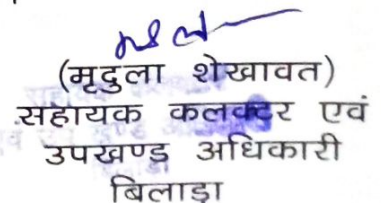 (मृदुला शेखावत)
सहायक कलक्टर एवं
उपखण्ड अधिकारी
बिलाड़ा